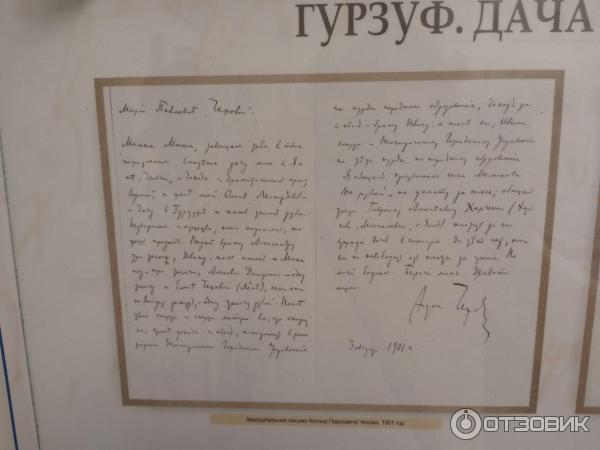 ГУРЗУФ. ДАЧА
Марии Павловне Чеховой.
Милая Маша, завещаю тебе в твое
пожизненное владение дачу мою в Ял-
те, деньги и доход с драматических произ-
ведений, а жене моей Ольге Леонардовне —
дачу в Гурзуфе и пять тысяч рублей.
Недвижимое имущество, если пожелаешь, мо-
жешь продать. Выдай брату Александру
три тысячи, Ивану — пять тысяч и Миха-
илу — три тысячи, Алексею Долженко одну
тысячу и Елене Чеховой (Леле), если она
не выйдет замуж, одну тысячу рублей. После
твоей смерти и смерти матери все, что окажет-
ся, кроме дохода с пьес, поступает в распо-
ряжение Таганрогского Городского Управления
на нужды народного образования, доход же
с пьес — брату Ивану, а после его, Ивана,
смерти — Таганрогскому Городскому Управлению
на те же нужды по народному образованию.
Я обещал крестьянам села Мелихова
100 рублей — на уплату за шоссе; обещал
также Гавриилу Алексеевичу Харченко (Харь-
ков, Москалевка, с. дом) платить за его
старшую дочь в гимназию до тех пор, пока
ее не освободят от платы за учение. По-
могай бедным. Береги мать. Живите
мирно.
Антон Чехов.
3 август 1901 г.
Завещательное письмо Антона Павловича Чехова. 1901 год
ОТЗОВИК